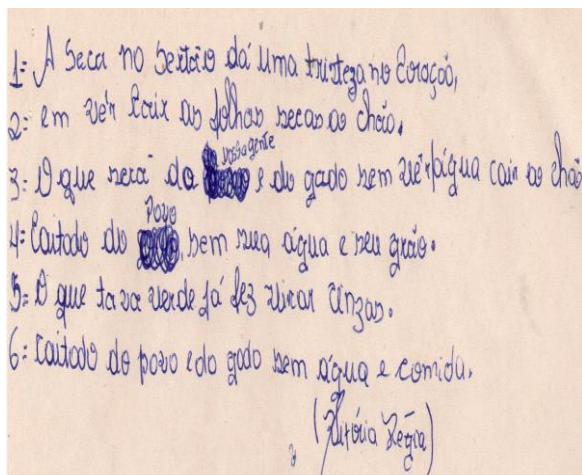 1= A Seca no Sertão dá uma tristeza no Coração,
2= em vêr Cair as folhas secas ao chão.
3= O que será da nossa gente e do gado sem vêr água cair ao chão
4= Coitado do Povo, sem sua água e seu grão.
5= O que tava verde já fez virar Cinzas.
6= Coitado do povo e do gado sem água e comida.
(Vitória Régia)